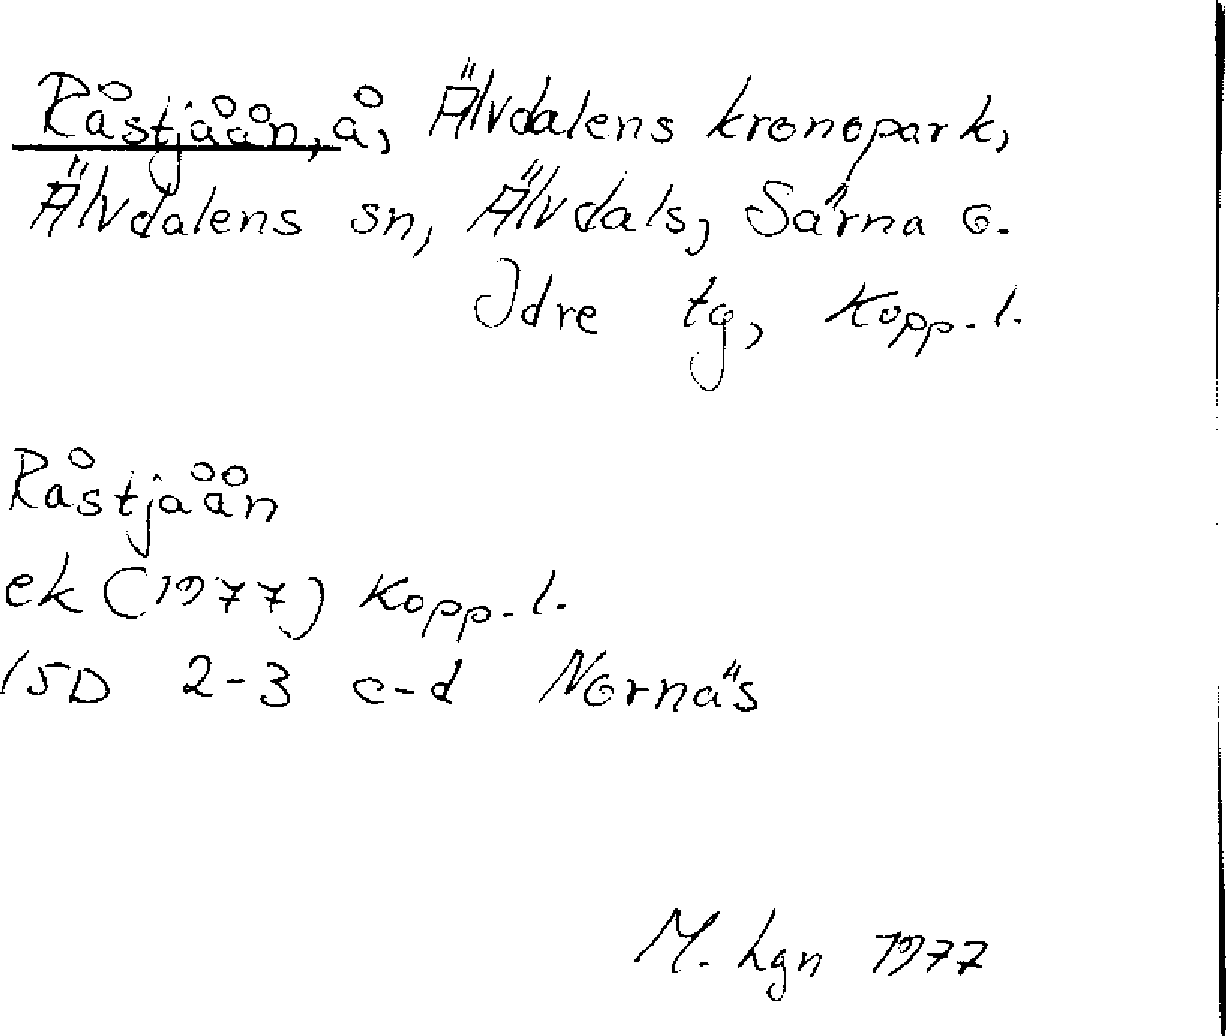 Råstjåån, å, Älvdalens kronopark,
Älvdalens sn, Älvdals, Särna o.
Idre tg, Kopp. l.
Råstjåån
ek (1977) Kopp. l.
15D 2-3 c-d Nornäs
M. Lgn 1977